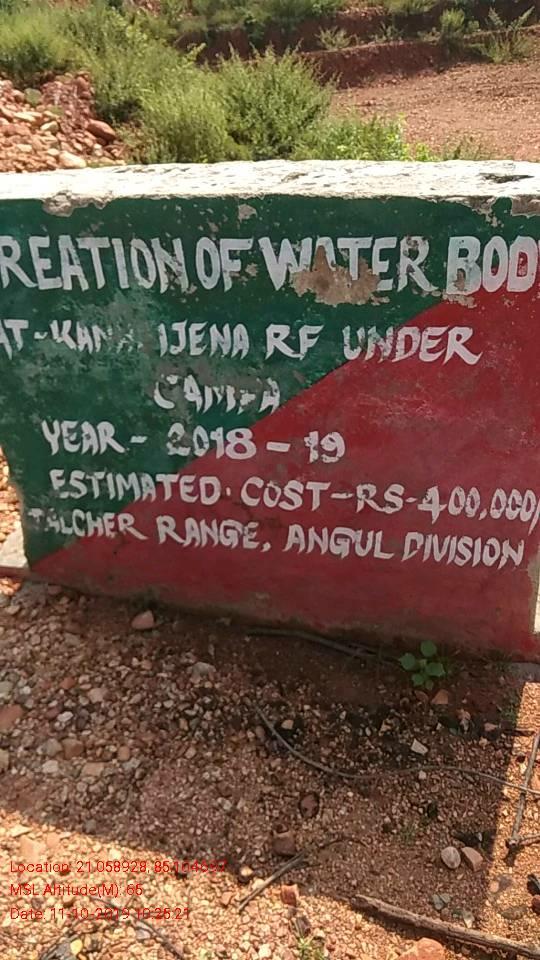 REATION OF WATER BOD
AT-KAN IJENA RF UNDER
CAMPA
YEAR - 2018 - 19
ESTIMATED. COST-RS-400,000/
TALCHER RANGE, ANGUL DIVISION
Location: 21.058928, 85.104697
MSL Altitude(M): 65
Date: 11-10-2019 10:25:21